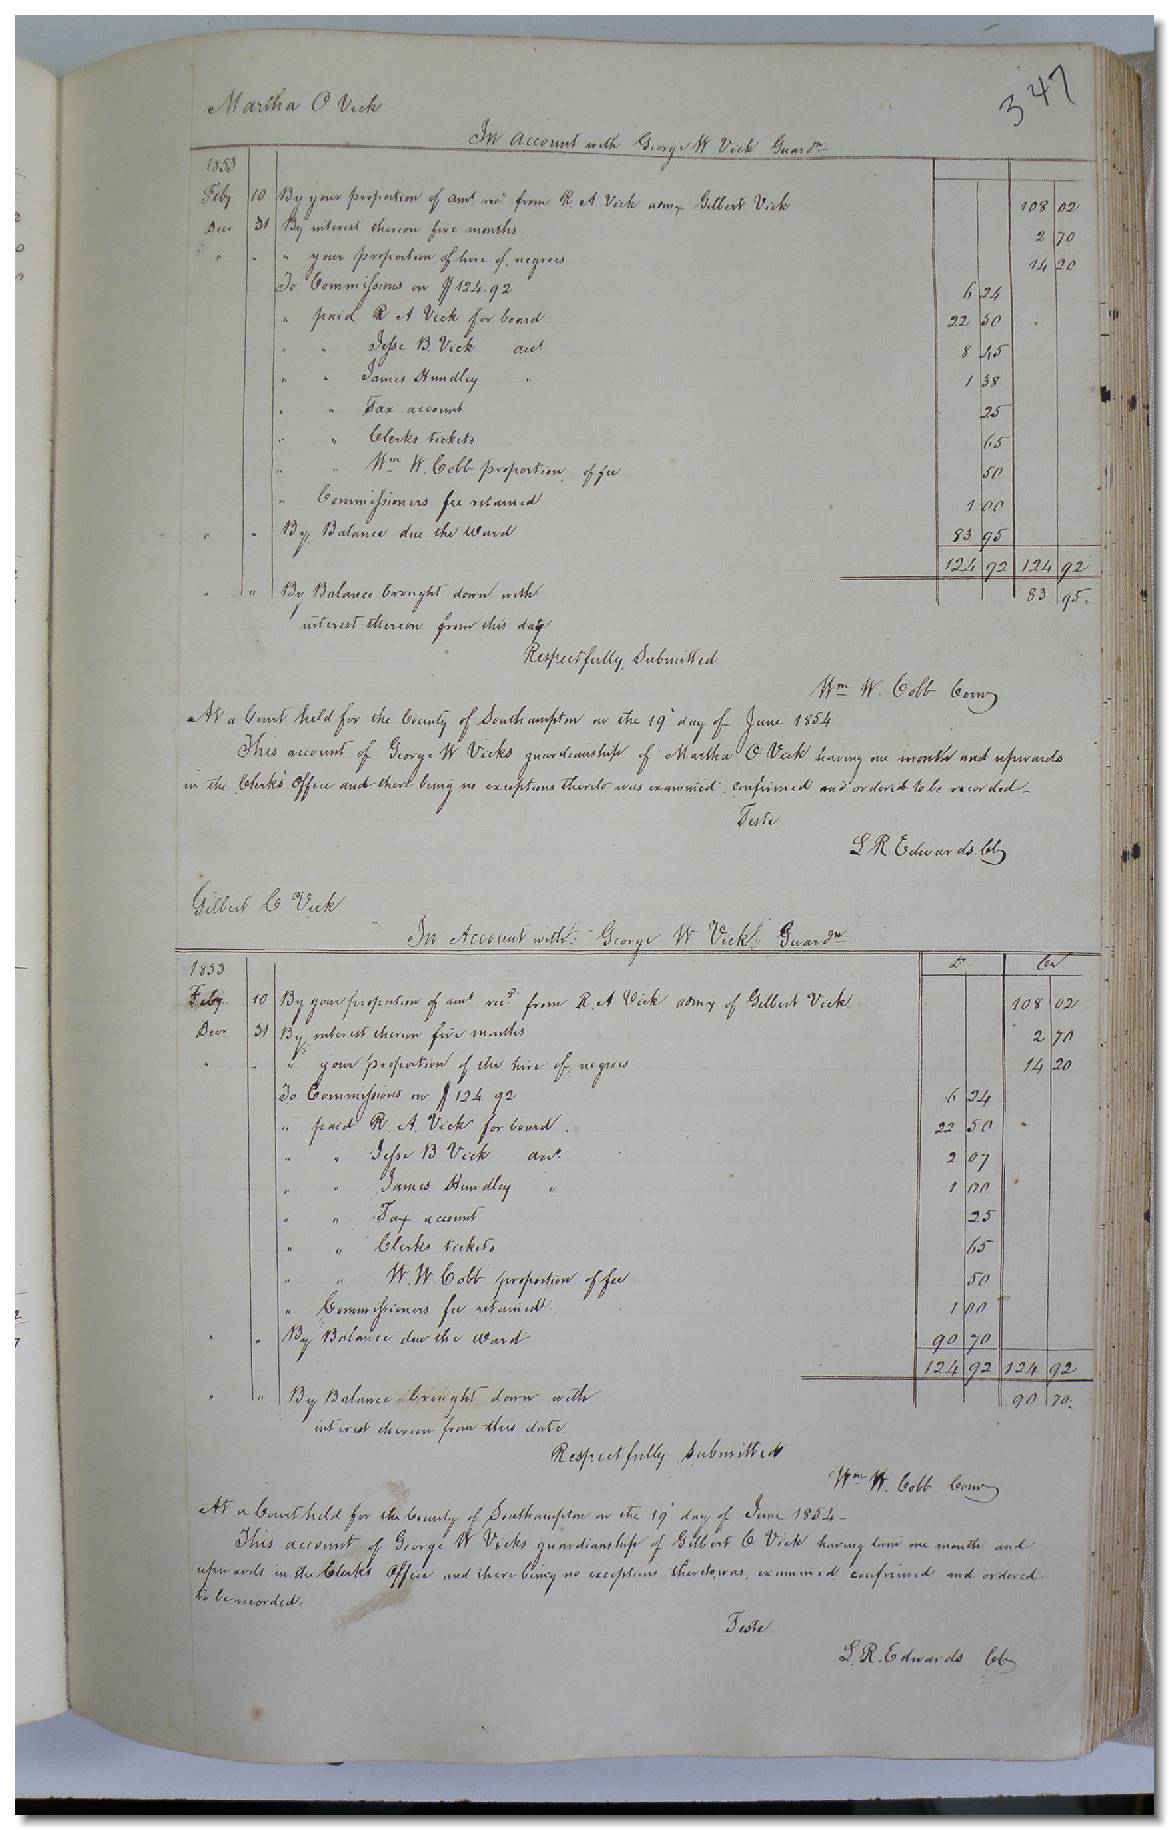 347
Martha O Vick
In account with George W Vick Guardn
1853
Feby 10 By your proportion of amt recd from R. A Vick admx Gilbert Vick 108 02
Decr 31 By interest thereon five months 2 70
" " " your proportion of hire of negroes 14 20
To Commissions on $124.92 6 24
" paid R A Vick for board 22 50
" " Jesse B. Vick acct 8 45
" " James Hundley " 1 38
" " Tax account 25
" " Clerks tickets 65
" " Wm W. Cobb proportion of fee 50
" Commissioners fee retained 1 00
" " By Balance due the Ward 83 95
124 92 124 92
" " By Balance brought down with 83 95.
interest thereon from this day
Respectfully Submitted
Wm W. Cobb Comr
At a Court held for the County of Southampton on the 19th day of June 1854
This account of George W Vicks guardianship of Martha O Vick having one month and upwards
in the Clerk's Office and there being no exceptions thereto was examined confirmed and ordered to be recorded -
Teste
L R Edwards Clk
Gilbert C Vick
In Account with George W Vick Guardn
1853 Dr Cr
Feby 10 By your proportion of amt recd from R. A Vick admx of Gilbert Vick 108 02
Decr 31 By interest thereon five months 2 70
" " " your proportion of the hire of negroes 14 20
To Commissions on $124.92 6 24
" paid R. A. Vick for board. 22 50
" " Jesse B Vick acct. 2 07
" " James Hundley " 1 00
" " Tax account 25
" " Clerks tickets 65
" " W. W. Cobb proportion of fee 50
" Commissioners fee retained 1 00
" " By Balance due the Ward 90 70
124 92 124 92
" " By Balance brought down with 90 70.
interest thereon from this date
Respectfully Submitted
Wm W. Cobb Comr
At a Court held for the County of Southampton on the 19th day of June 1854 -
This account of George W Vicks guardianship of Gilbert C Vick having lain one month and
upwards in the Clerk's Office and there being no exceptions thereto, was examined confirmed and ordered
to be recorded.
Teste
L. R. Edwards Clk